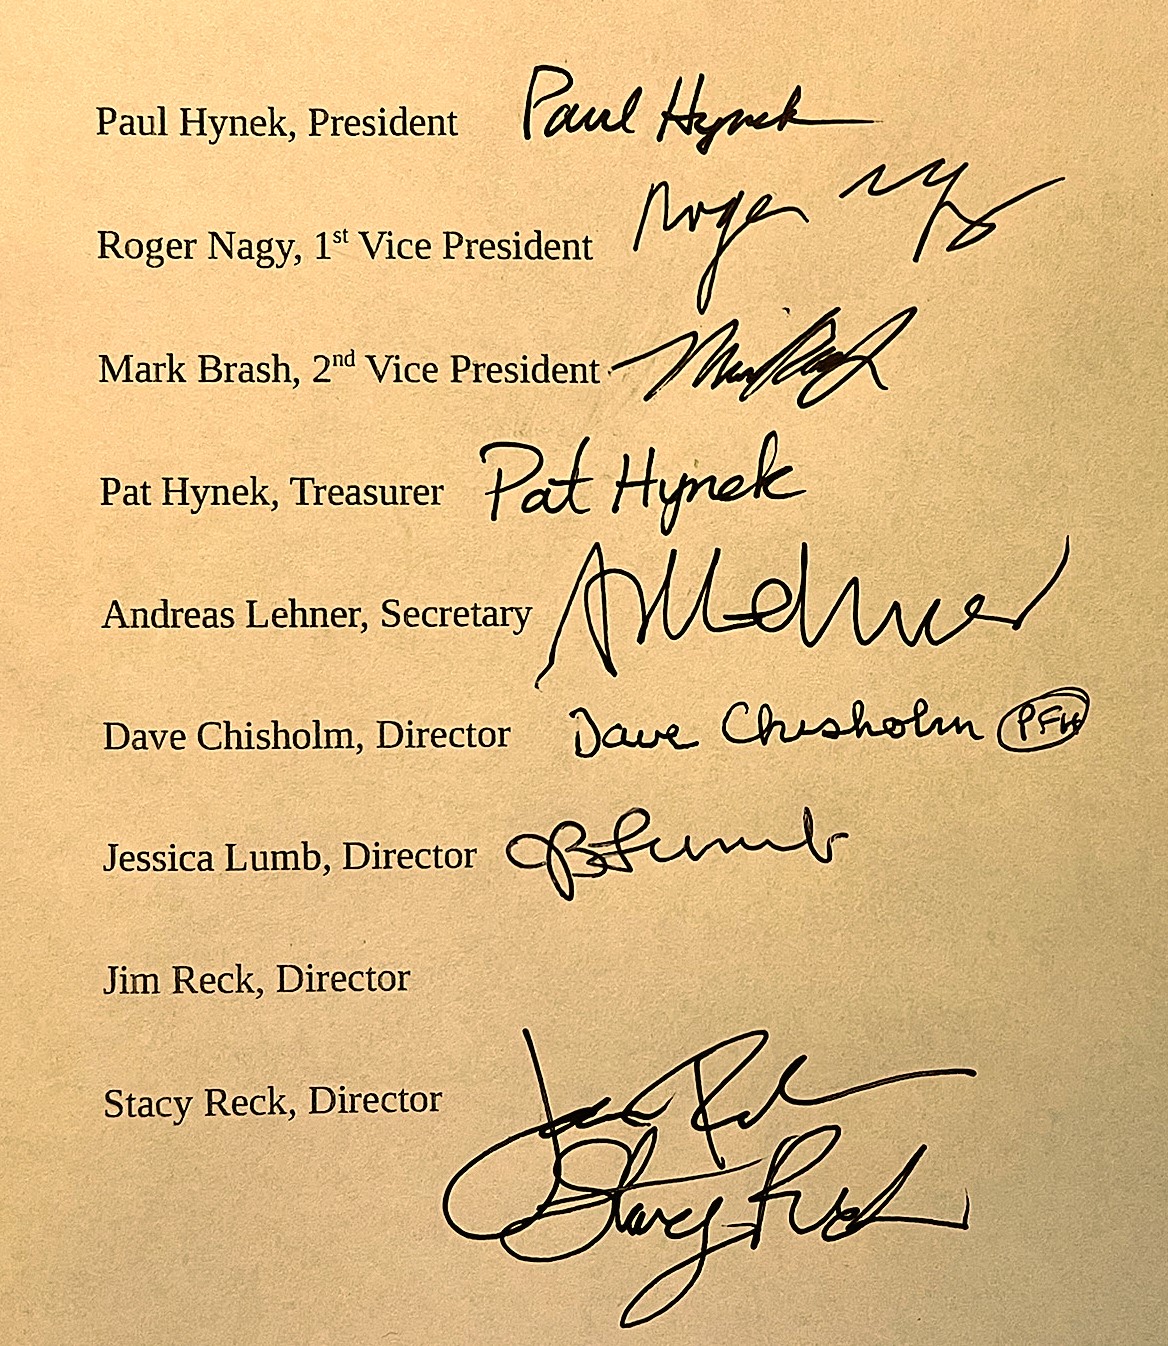 Paul Hynek, President Paul Hynek
Roger Nagy, 1st Vice President Roger Nagy
Mark Brash, 2nd Vice President
Pat Hynek, Treasurer Pat Hynek
Andreas Lehner, Secretary A Lehner
Dave Chisholm, Director Dave Chisholm PFH
Jessica Lumb, Director JB Lumb
Jim Reck, Director
Stacy Reck, Director
Jim Reck
Stacy Reck